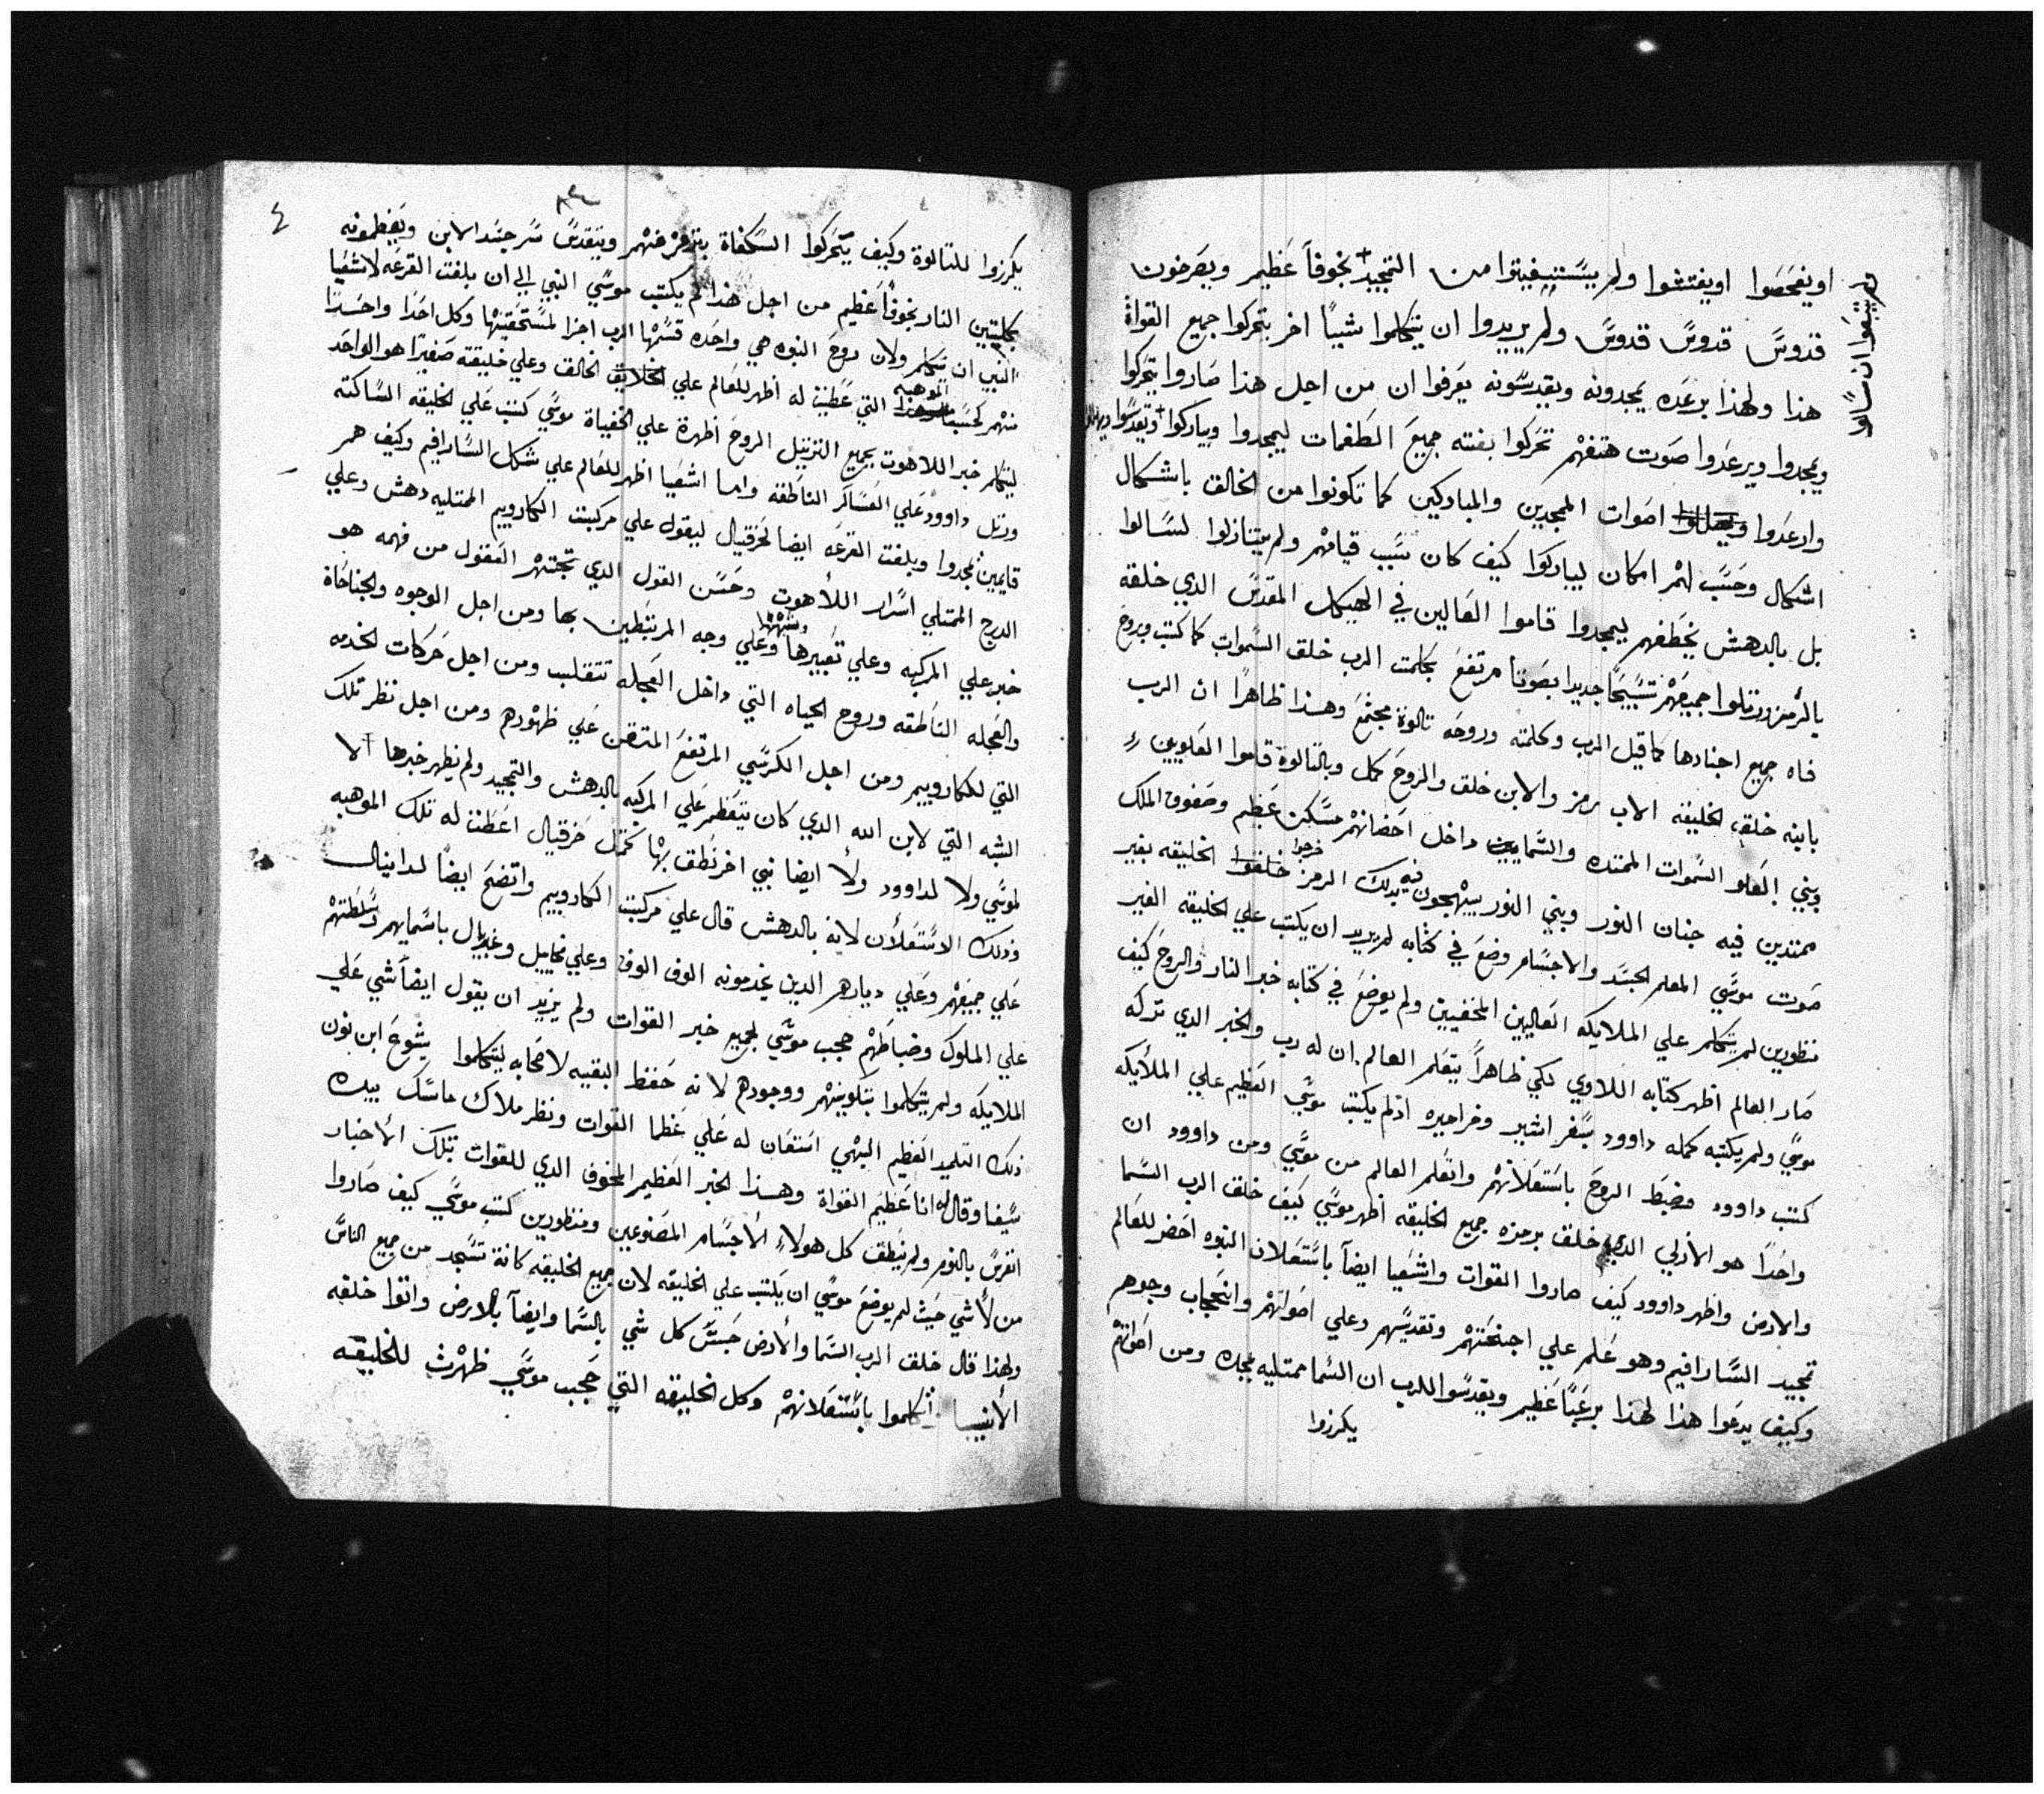 اويفحصوا اويفتشوا ولم يستفيقوا من التمجيد بخوفاً عظيم ويصرخون
قدوس قدوس قدوس ولم يريدوا ان يتكلموا شيئاً اخر بتحركوا جميع القواة
هذا ولهذا برعده يمجدونه ويقدسونه يعرفوا ان من اجل هذا صاروا يتحركوا
ويمجدوا ويرعدوا صوت هتفهم تحركوا بغته جميع الطغمات ليمجدوا ويباركوا ويقدسوا
وارعدوا اصوات الممجدين والمباركين كما تكونوا من الخالق باشكال
اشكال وحسب لهم امكان ليباركوا كيف كان سبب قيامهم ولم يتنازلوا لسالوا
بل بالدهش بخطفهم ليمجدوا قاموا العالين في الهيكل المقدس الدي خلقه
بالرمز ورتلوا جميعهم تسبيحاً جديدا بصوتا مرتفع بكلمت الرب خلق السموات كما كتب وبروح
فاه جميع اجنادها كما قيل الرب وكلمته وروحه تالوة مجتمع وهذا ظاهراً ان الرب
بابنه خلق الخليقه الاب رمز والابن خلق والروح كمل وبالتالوة قاموا العلويين
وبني العلو السموات الممتده والسمايين داخل احضانهم مسكن عظيم وصفوف الملك
ممتدين فيه جنان النور وبني النور يبتهجون فيه بدلك الرمز خرجوا الخليقه بغير
صوت موسي المعلم الجسد والاجسام وضع في كتابه لم يريد ان يكتب علي الخليقه الغير
منظورين لم يتكلم علي الملايكه العاليين المخفيين ولم يوضع في كتابه خبر النار والروح كيف
صار العالم اظهر كتابه اللاوي لكي ظاهراً يتعلم العالم ان له رب والخبر الدي تركه
موسي ولم يكتبه كمله داوود بسفر اشير ومزاميره اذ لم يكتب موسي العظيم علي الملأيكه
كتب داوود وضبط الروح باستعلانهم واتعلم العالم من موسي ومن داوود ان
واحداً هو الازلي الدي خلق برمزه جميع الخليقه اظهر موسي كيف خلق الرب السما
والارض واظهر داوود كيف صاروا القوات واشعيا ايضاً باستعلان النبوه احضر للعالم
تمجيد السارافيم وهو علم علي اجنحتهم وتقديسهم وعلي اصواتهم وانحجاب وجوههم
وكيف يدعوا هذا لهذا برعباً عظيم ويقدسوا للرب ان السما ممتليه مجده ومن اصواتهم
يكرزوا
٤
يكرزوا للتالوة وكيف يتحركوا السكفاة بترمز منهم ويتقدس سر جسد الابن ويعظمونه
بكلبتين النار بخوفاً عظيم من اجل هذا لم يكتب موسي النبي الي ان بلغت القرعه لاشعيا
النبي ان يتكلم ولان روح النبوه هي واحده قسمها الرب اجزا لمستحقيتها وكل احداً واحداً
منهم كحسب الموهبه التي عطيت له اظهر للعالم علي الخالق وعلي خليقته صغيراً هو الواحد
ليتكلم خبر اللاهوت بجميع الترتيل الروح اظهرة علي الخفياة موسي كتب علي الخليقه الساكته
ورتل داوود علي العساكر الناطقه واما اشعيا اظهر للعالم علي شكل السارافيم وكيف هم
قايمين يمجدوا وبلغت القرعه ايضا لحزقيال ليقول علي مركبت الكاروبيم الممتليه دهش وعلي
الدرج الممتلي اسرار اللأهوت وحسن القول الدي تجتهر العقول من فهمه هو
خبر علي المركبه وعلي تعبيرها وعلي وجه المرتبطين بها ومن اجل الوجوه والجناحاة
والعجله الناطقه وروح الحياه التي داخل العجله تتقلب ومن اجل حركات الخدمه
التي للكاروبيم ومن اجل الكرسي المرتفع المتقن علي ظهورهم ومن اجل نظر تلك
الشبه التي لابن الله الدي كان يتعظم علي المركبه بالدهش والتمجيد ولم يظهر خبرها الا
لموسي ولا لداوود ولا ايضا نبي اخر نطق بها كمثل حزقيال اعطت له تلك الموهبه
وذلك الاستعلان لانه بالدهش قال علي مركبت الكاروبيم واتضح ايضاً لدانيال
علي جميعهم وعلي ديارهم الدين يخدمونه الوف الوف وعلي مخاييل وغبريال باسمايهم وسلطتهم
علي الملوك وضباطهم حجب موسي لجميع خبر القوات ولم يريد ان يقول ايضاً شي علي
الملايكه ولم يتكلموا بتلوينهم ووجودهم لانه حفظ البقيه لاصحابه ليتكلموا يشوع ابن نون
ذلك التلميد العظيم البهي استعان له علي عظما القوات ونظر ملاك ماسك بيده
سيفا وقال له انا عظيم القواة وهذا الخبر العظيم المخوف الدي للقوات بتلك الأخبار
اتغرس بالنور ولم نطق كل هولاء الأجسام المصنوعين ومنظورين كتب موسي كيف صاروا
من لأشي حيث لم يوضع موسي ان يكتب علي الخليقه لان جميع الخليقه كانة تسجد من جميع الناس
ولهذا قال خلق الرب السما والأرض حبس كل شي بالسما وايضاً بالارض واتوا خلفه
الأنبيا اتكلموا باستعلانهم وكل الخليقه التي حجب موسي ظهرت للخليقه